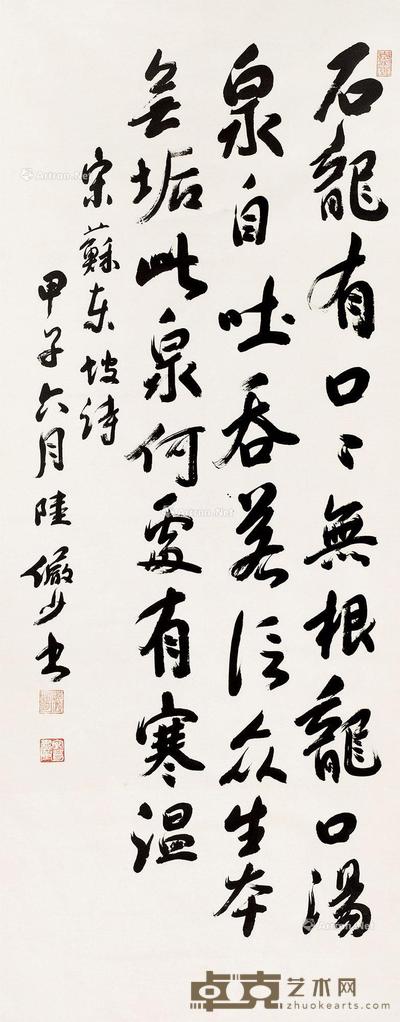 石龍有口〻無根龍口湯
泉自吐吞若信众生本
無垢此泉何處有寒温
宋蘇东坡诗
甲子六月陸儼少书
Artron.Net
卓克艺术网
www.zhuokearts.com